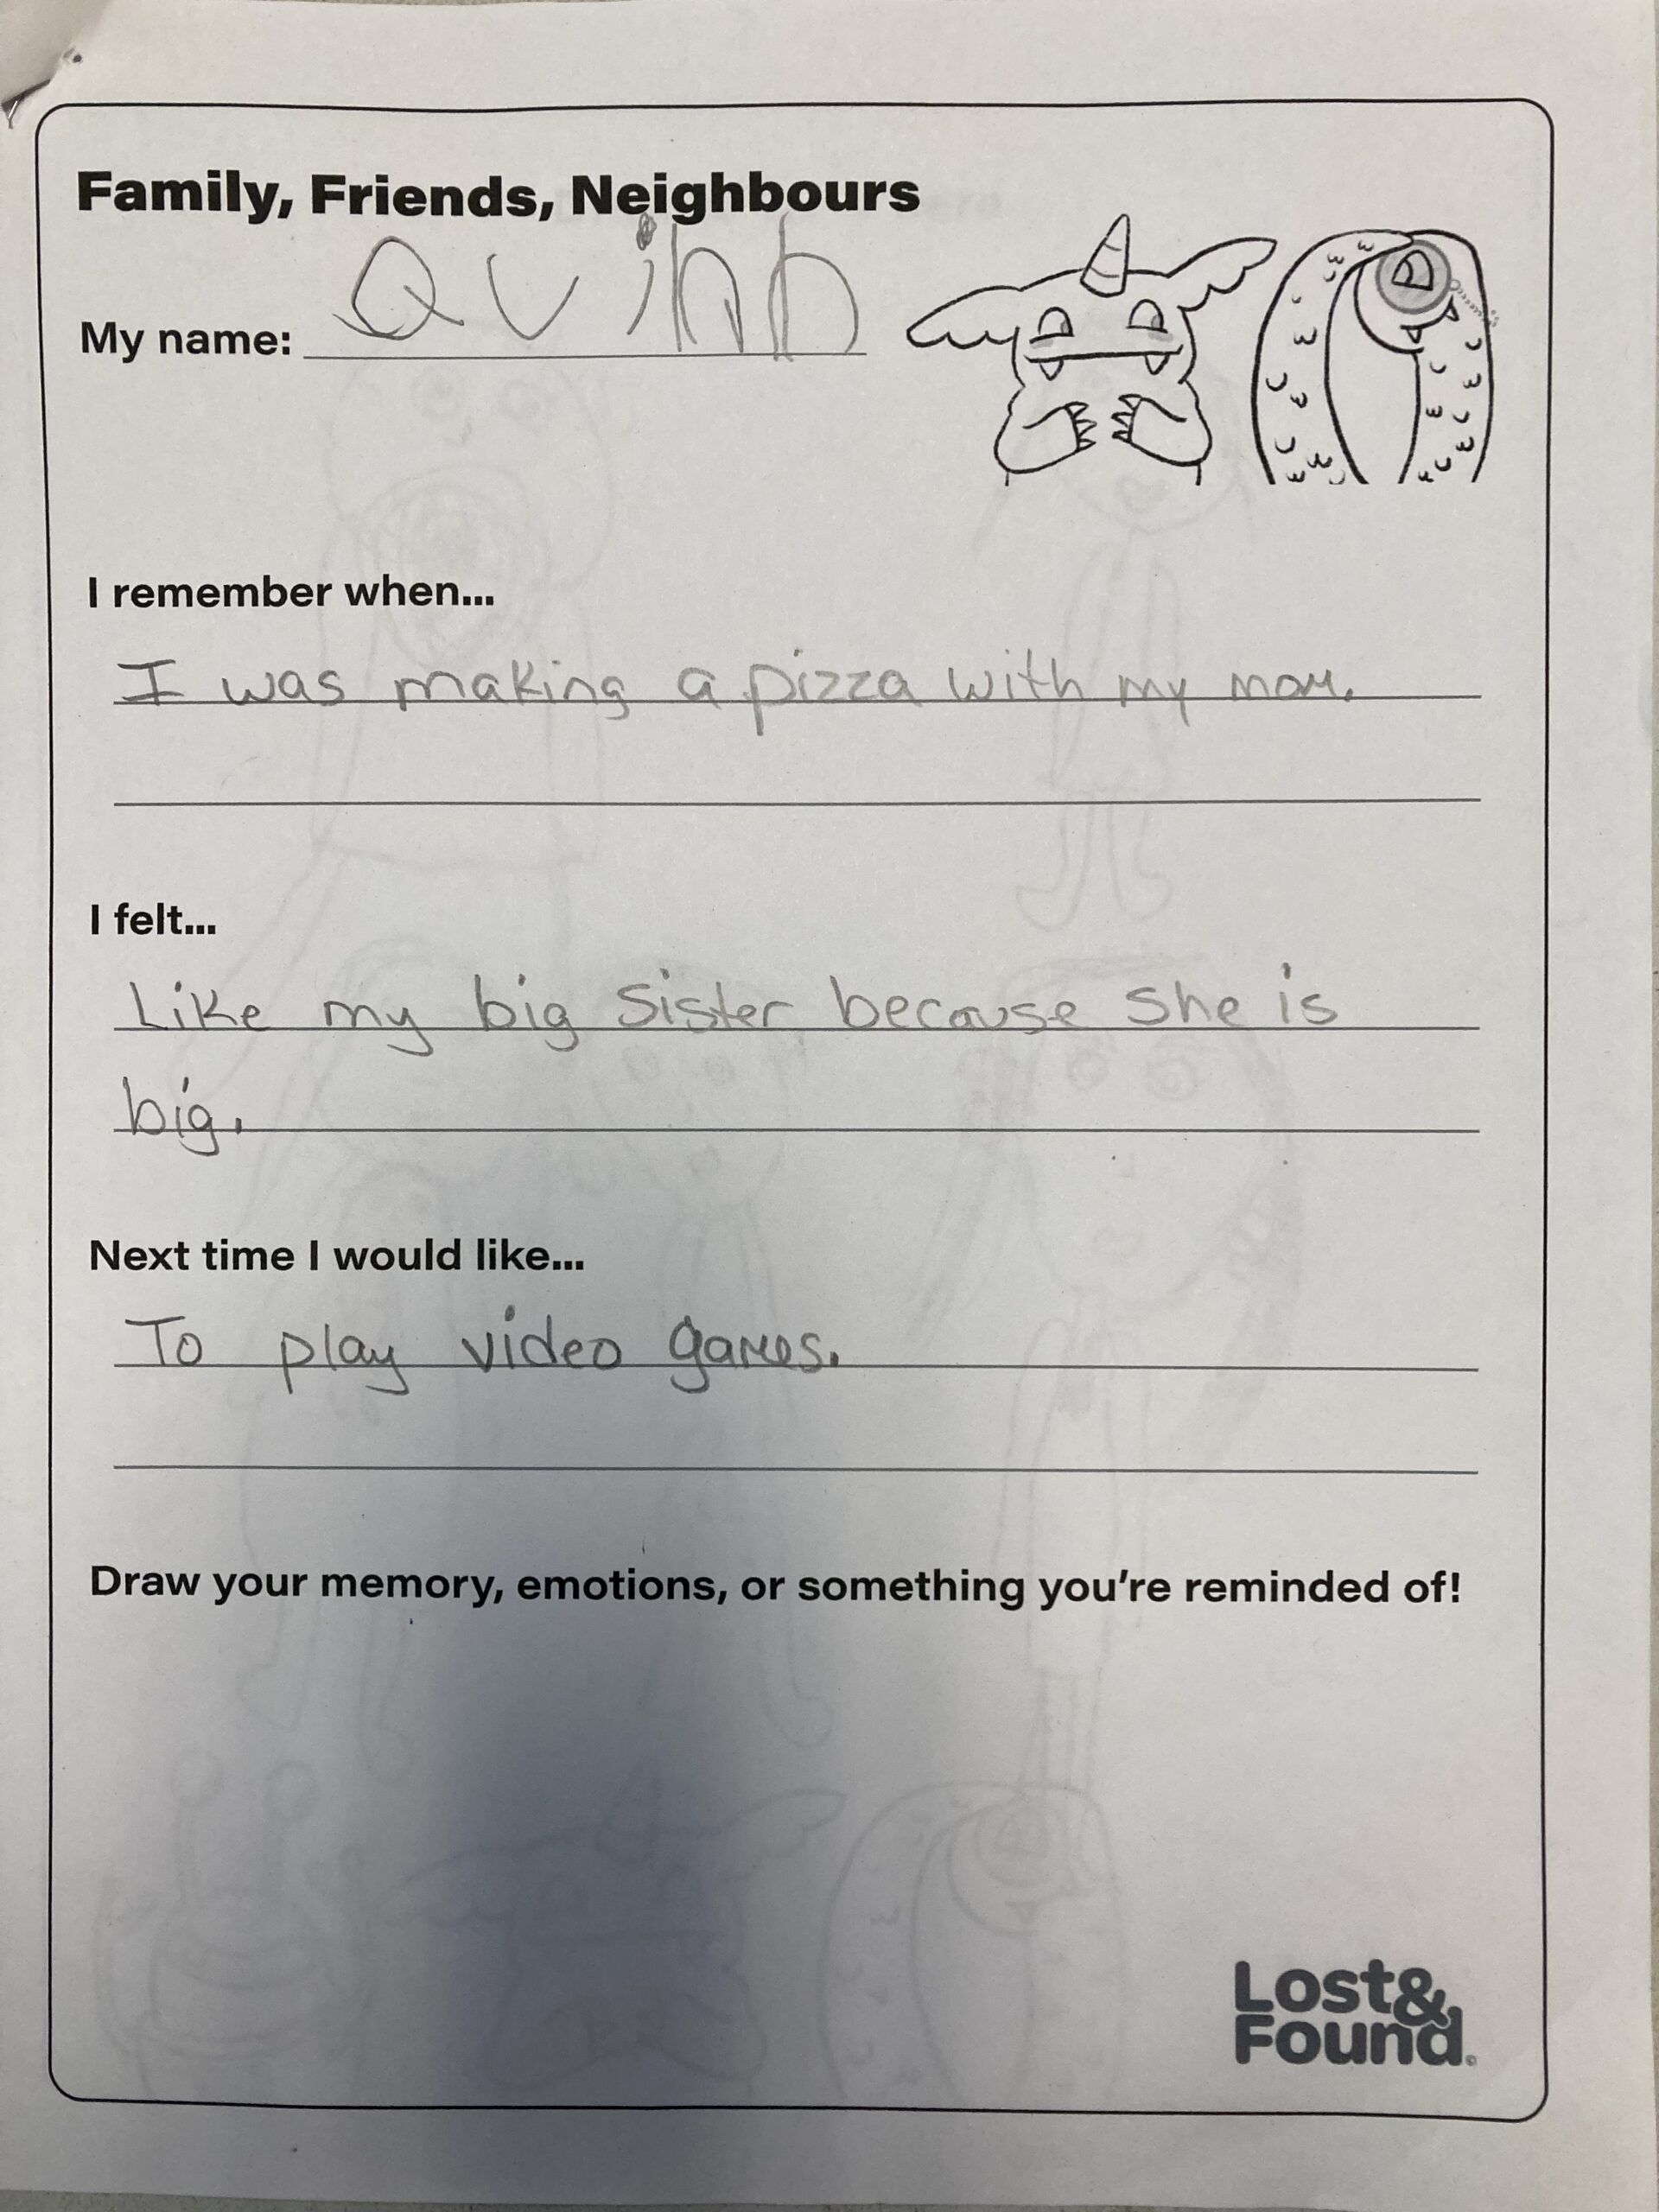 Family, Friends, Neighbours
My name: Quinn
I remember when...
I was making a pizza with my mom.
I felt...
Like my big sister because she is
big.
Next time I would like...
To play video games.
Draw your memory, emotions, or something you're reminded of!
Lost&
Found